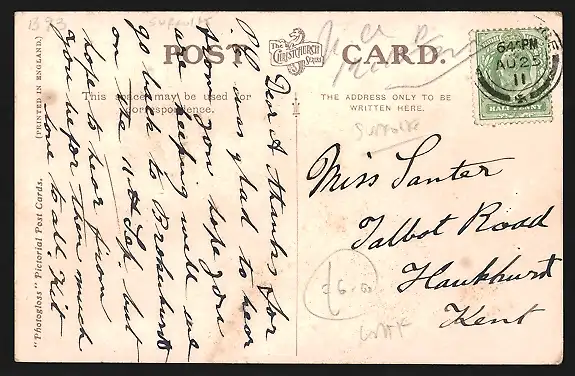 B93
SUFFOLK
POST CARD.
The
CHRISTCHURCH
Series
This space may be used for
correspondence.
THE ADDRESS ONLY TO BE
WRITTEN HERE.
(PRINTED IN ENGLAND.)
"Photogloss" Pictorial Post Cards.
Dear A thanks for
PC was glad to hear
from you hope you
are keeping well we
go back to Brockenhurst
on the 11th Sep. but
hope to hear from
you before then much
love to all. Kit
6 45 PM
AU 25
11
HALF PENNY
Suffolk
Miss Santer
Talbot Road
Hawkhurst
Kent